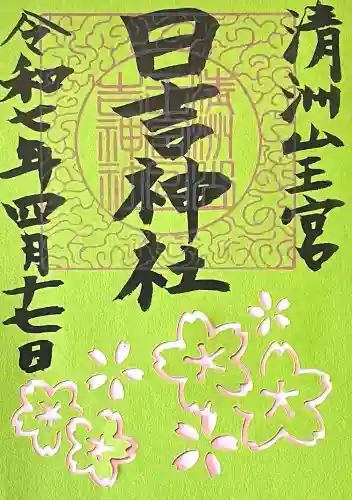 清洲山王宮
日吉神社
清洲山王
日吉神社
令和七年四月十七日